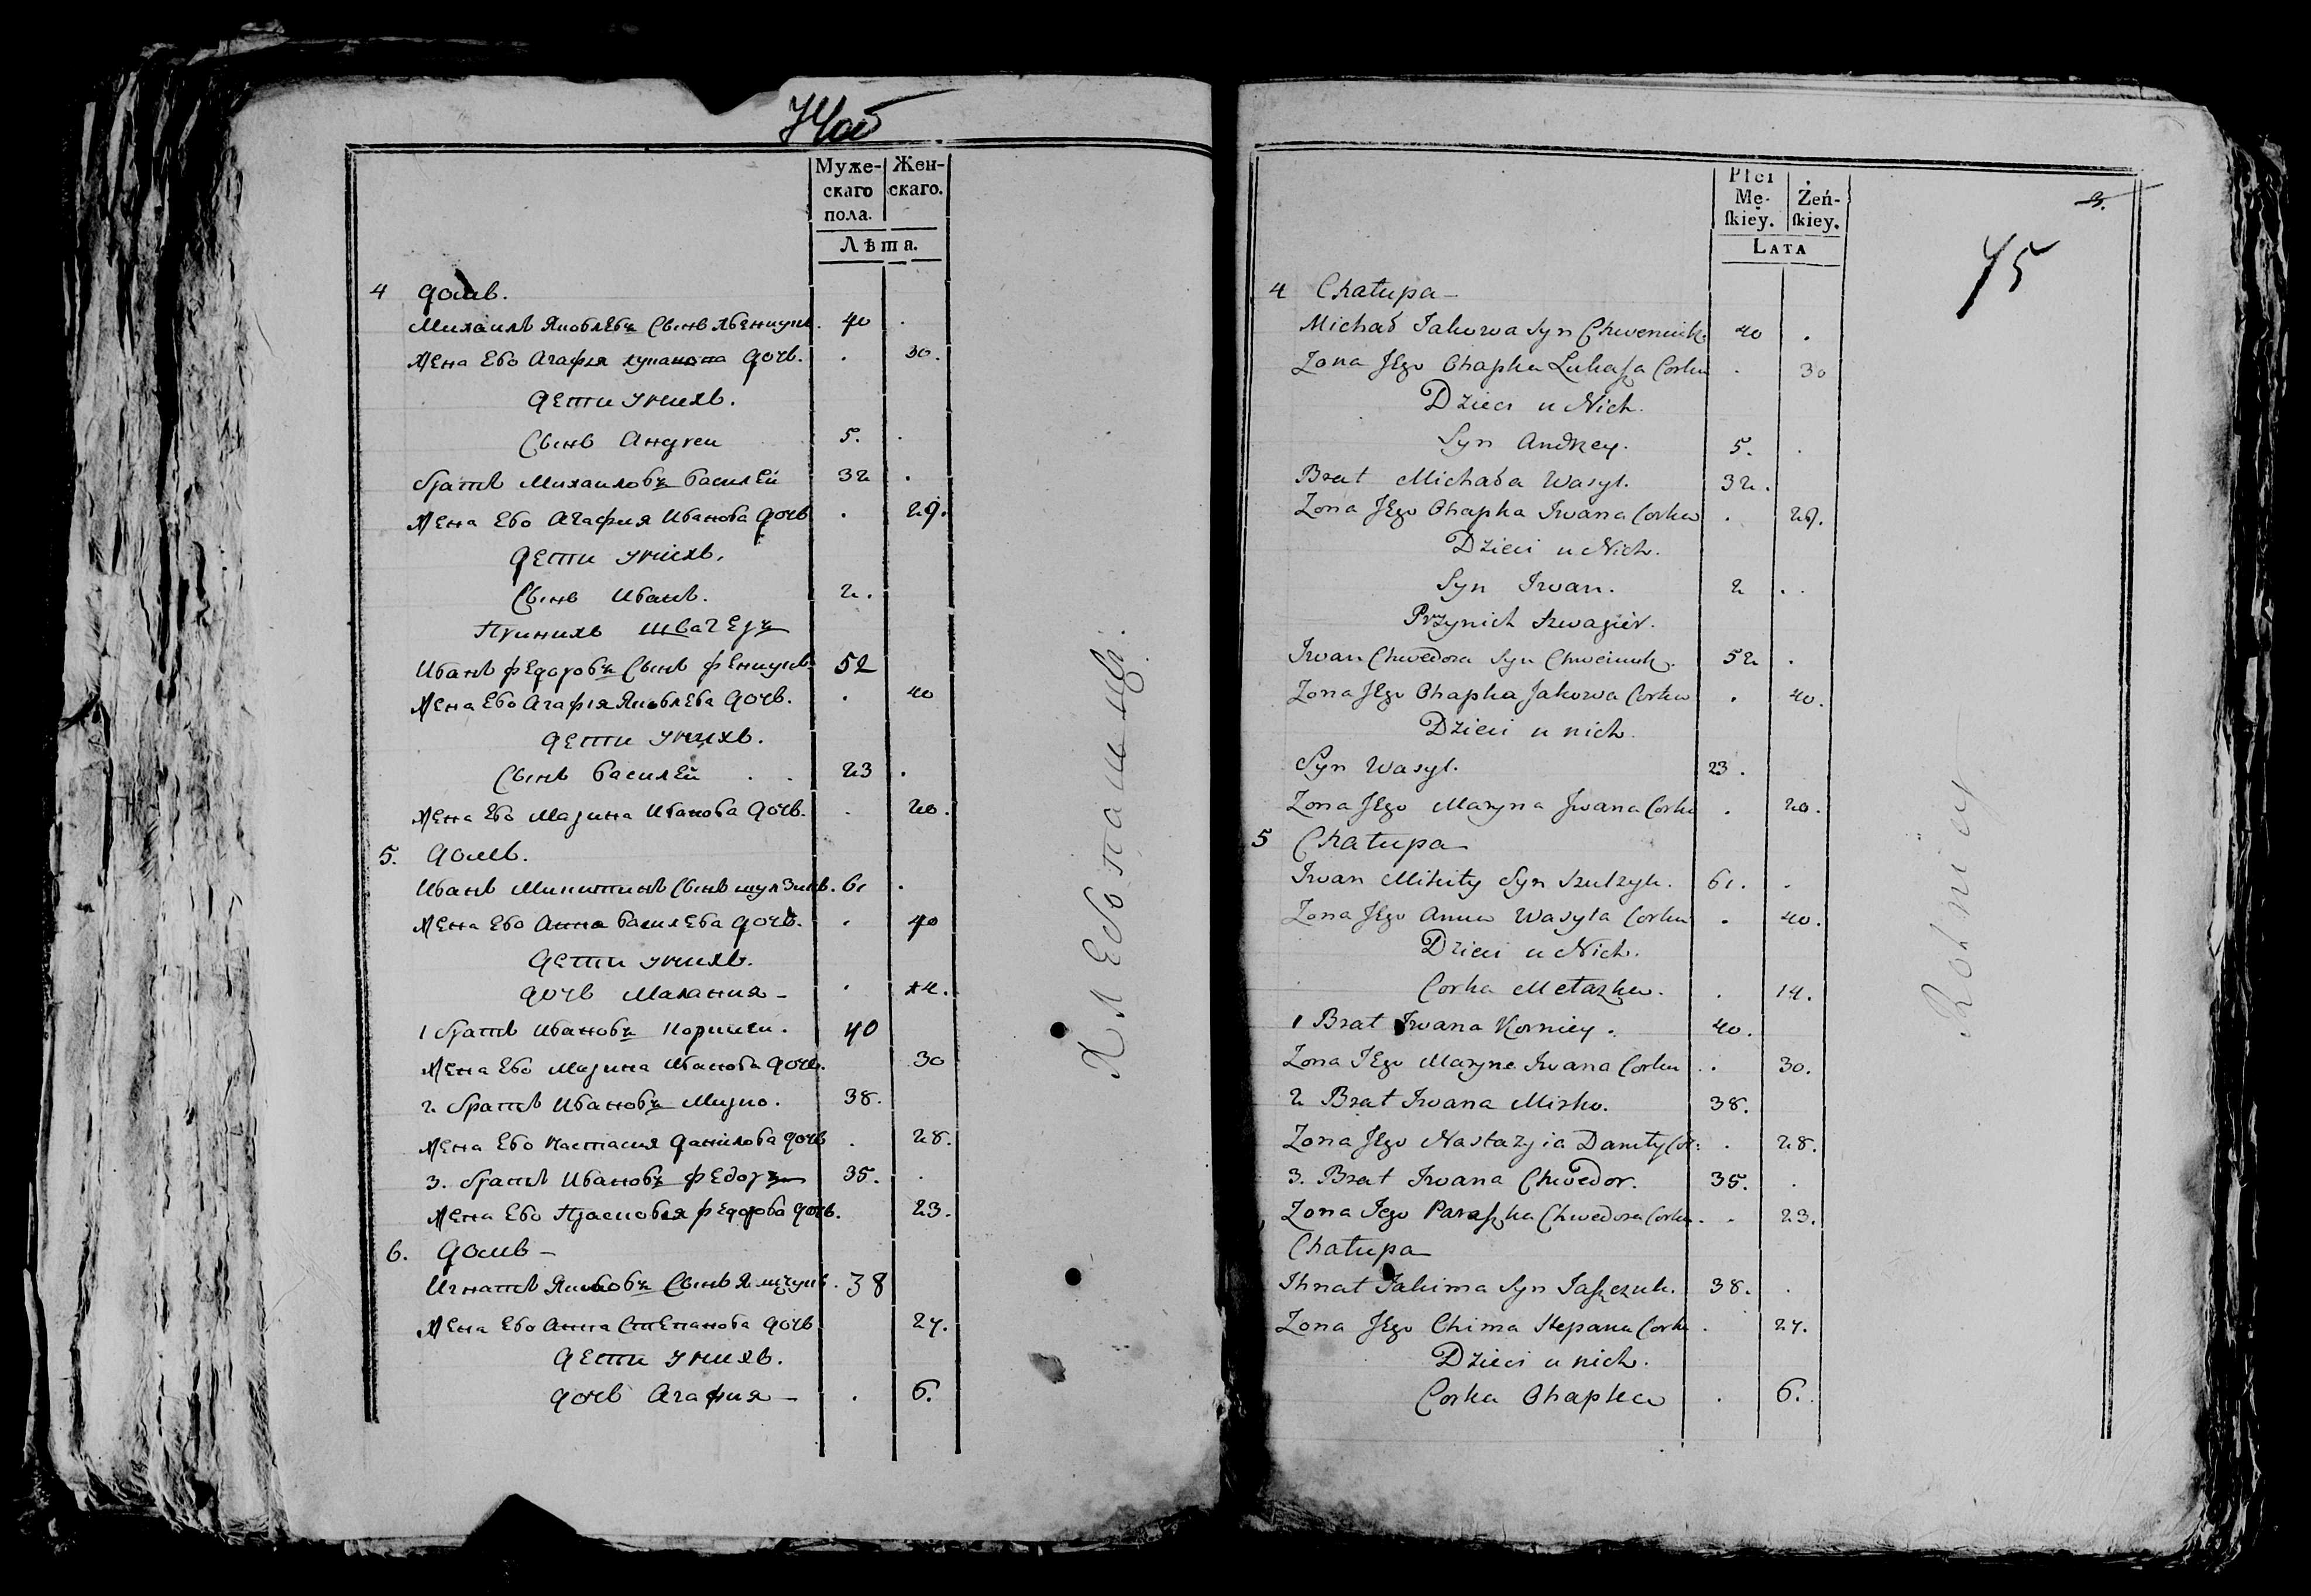 74об
Муже-
скаго
пола.
Жен-
скаго.
Лѣта.
4 домъ.
Михаилъ Яковлевъ сынъ хвеницукъ. 40 .
Жена Ево Агафия лукашова дочь. . 30.
дети у нихъ.
Сынъ Андреи 5. .
братъ Михаиловъ василей 32 .
Жена Ево Агафия Иванова дочь . 29.
дети у нихъ.
Сынъ Иванъ. 2.
При нихъ швагеръ
Иванъ федоровъ Сынъ феницукъ 52
Жена Ево Агафия Яковлева дочь. . 40
дети у нихъ.
Сынъ василей . . 23 .
Жена Ево Марина Иванова дочь. . 20.
5. домъ.
Иванъ Микитинъ сынъ шулзикъ. 61 .
Жена Ево Анна василева дочь. . 40
дети у нихъ.
дочь Малания - . 14.
1 братъ Ивановъ Корнией. 40
Жена Ево Марина Иванова дочь. 30
2. братъ Ивановъ Мирко. 38.
Жена Ево Настасия данилова дочь . 28.
3. братъ Ивановъ федоръ 35. .
Жена Ево Прасковия федорова дочь. 23.
6. домъ -
Игнатъ Якимовъ Сынъ Ящукъ. 38
Жена Ево Анна Степанова дочь 27.
дети у нихъ.
дочь Агафия - . 6.
Хлебопашцы.
Płci
Mę-
ſkiey.
Żeń-
ſkiey.
LATA
3.
75
4 Chałupa -
Michał Jakowa Syn Chweniuk 40 .
Zona Jego Ohapka Lukaſza Corka . 30
Dzieci u Nich.
Syn Andrzey. 5. .
Brat Michała Wasyl. 32.
Zona Jego Ohapka Iwana Corka . 29.
Dzieci u Nich.
Syn Iwan. 2 . .
Przy nich szwagier.
Iwan Chwedora Syn Chweniuk. 52 .
Zona Jego Ohapka Jakowa Corka . 40.
Dzieci u nich.
Syn Wasyl. 23 .
Zona Jego Maryna Iwana Corka . 20.
5 Chałupa
Iwan Mikity Syn Szulzyk. 61. .
Zona Jego Anna Wasyla Corka . 40.
Dzieci u Nich.
Corka Melaszka. . 14.
1 Brat Iwana Korniey. 40.
Zona Jego Maryna Iwana Corka . . 30.
2 Brat Iwana Mirko. 38.
Zona Jego Nastazyia Daniły Cor: . 28.
3. Brat Iwana Chwedor. 35. .
Zona Jego Paraſzka Chwedora Corka . . 23.
Chałupa
Ihnat Jakima Syn Jaſzczuk. 38. .
Zona Jego Chima Stepana Corka . 27.
Dzieci u nich.
Corka Ohapka . 6.
Rolnicy